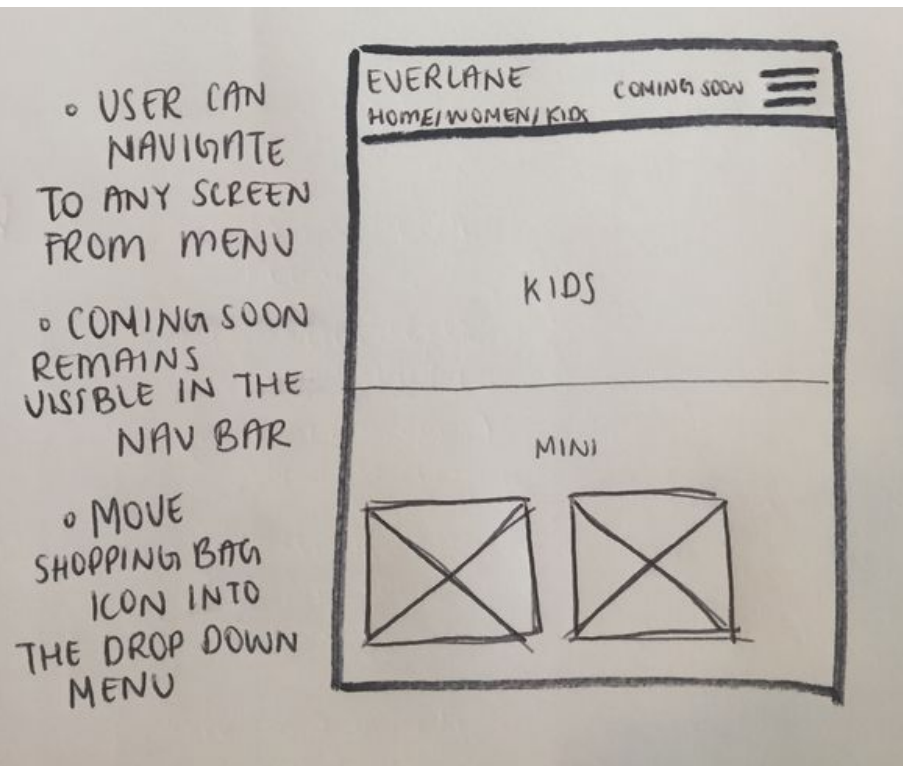 ○ USER CAN
NAVIGATE
TO ANY SCREEN
FROM MENU
○ COMING SOON
REMAINS
VISIBLE IN THE
NAV BAR
○ MOVE
SHOPPING BAG
ICON INTO
THE DROP DOWN
MENU
EVERLANE
COMING SOON
HOME/WOMEN/KIDS
KIDS
MINI